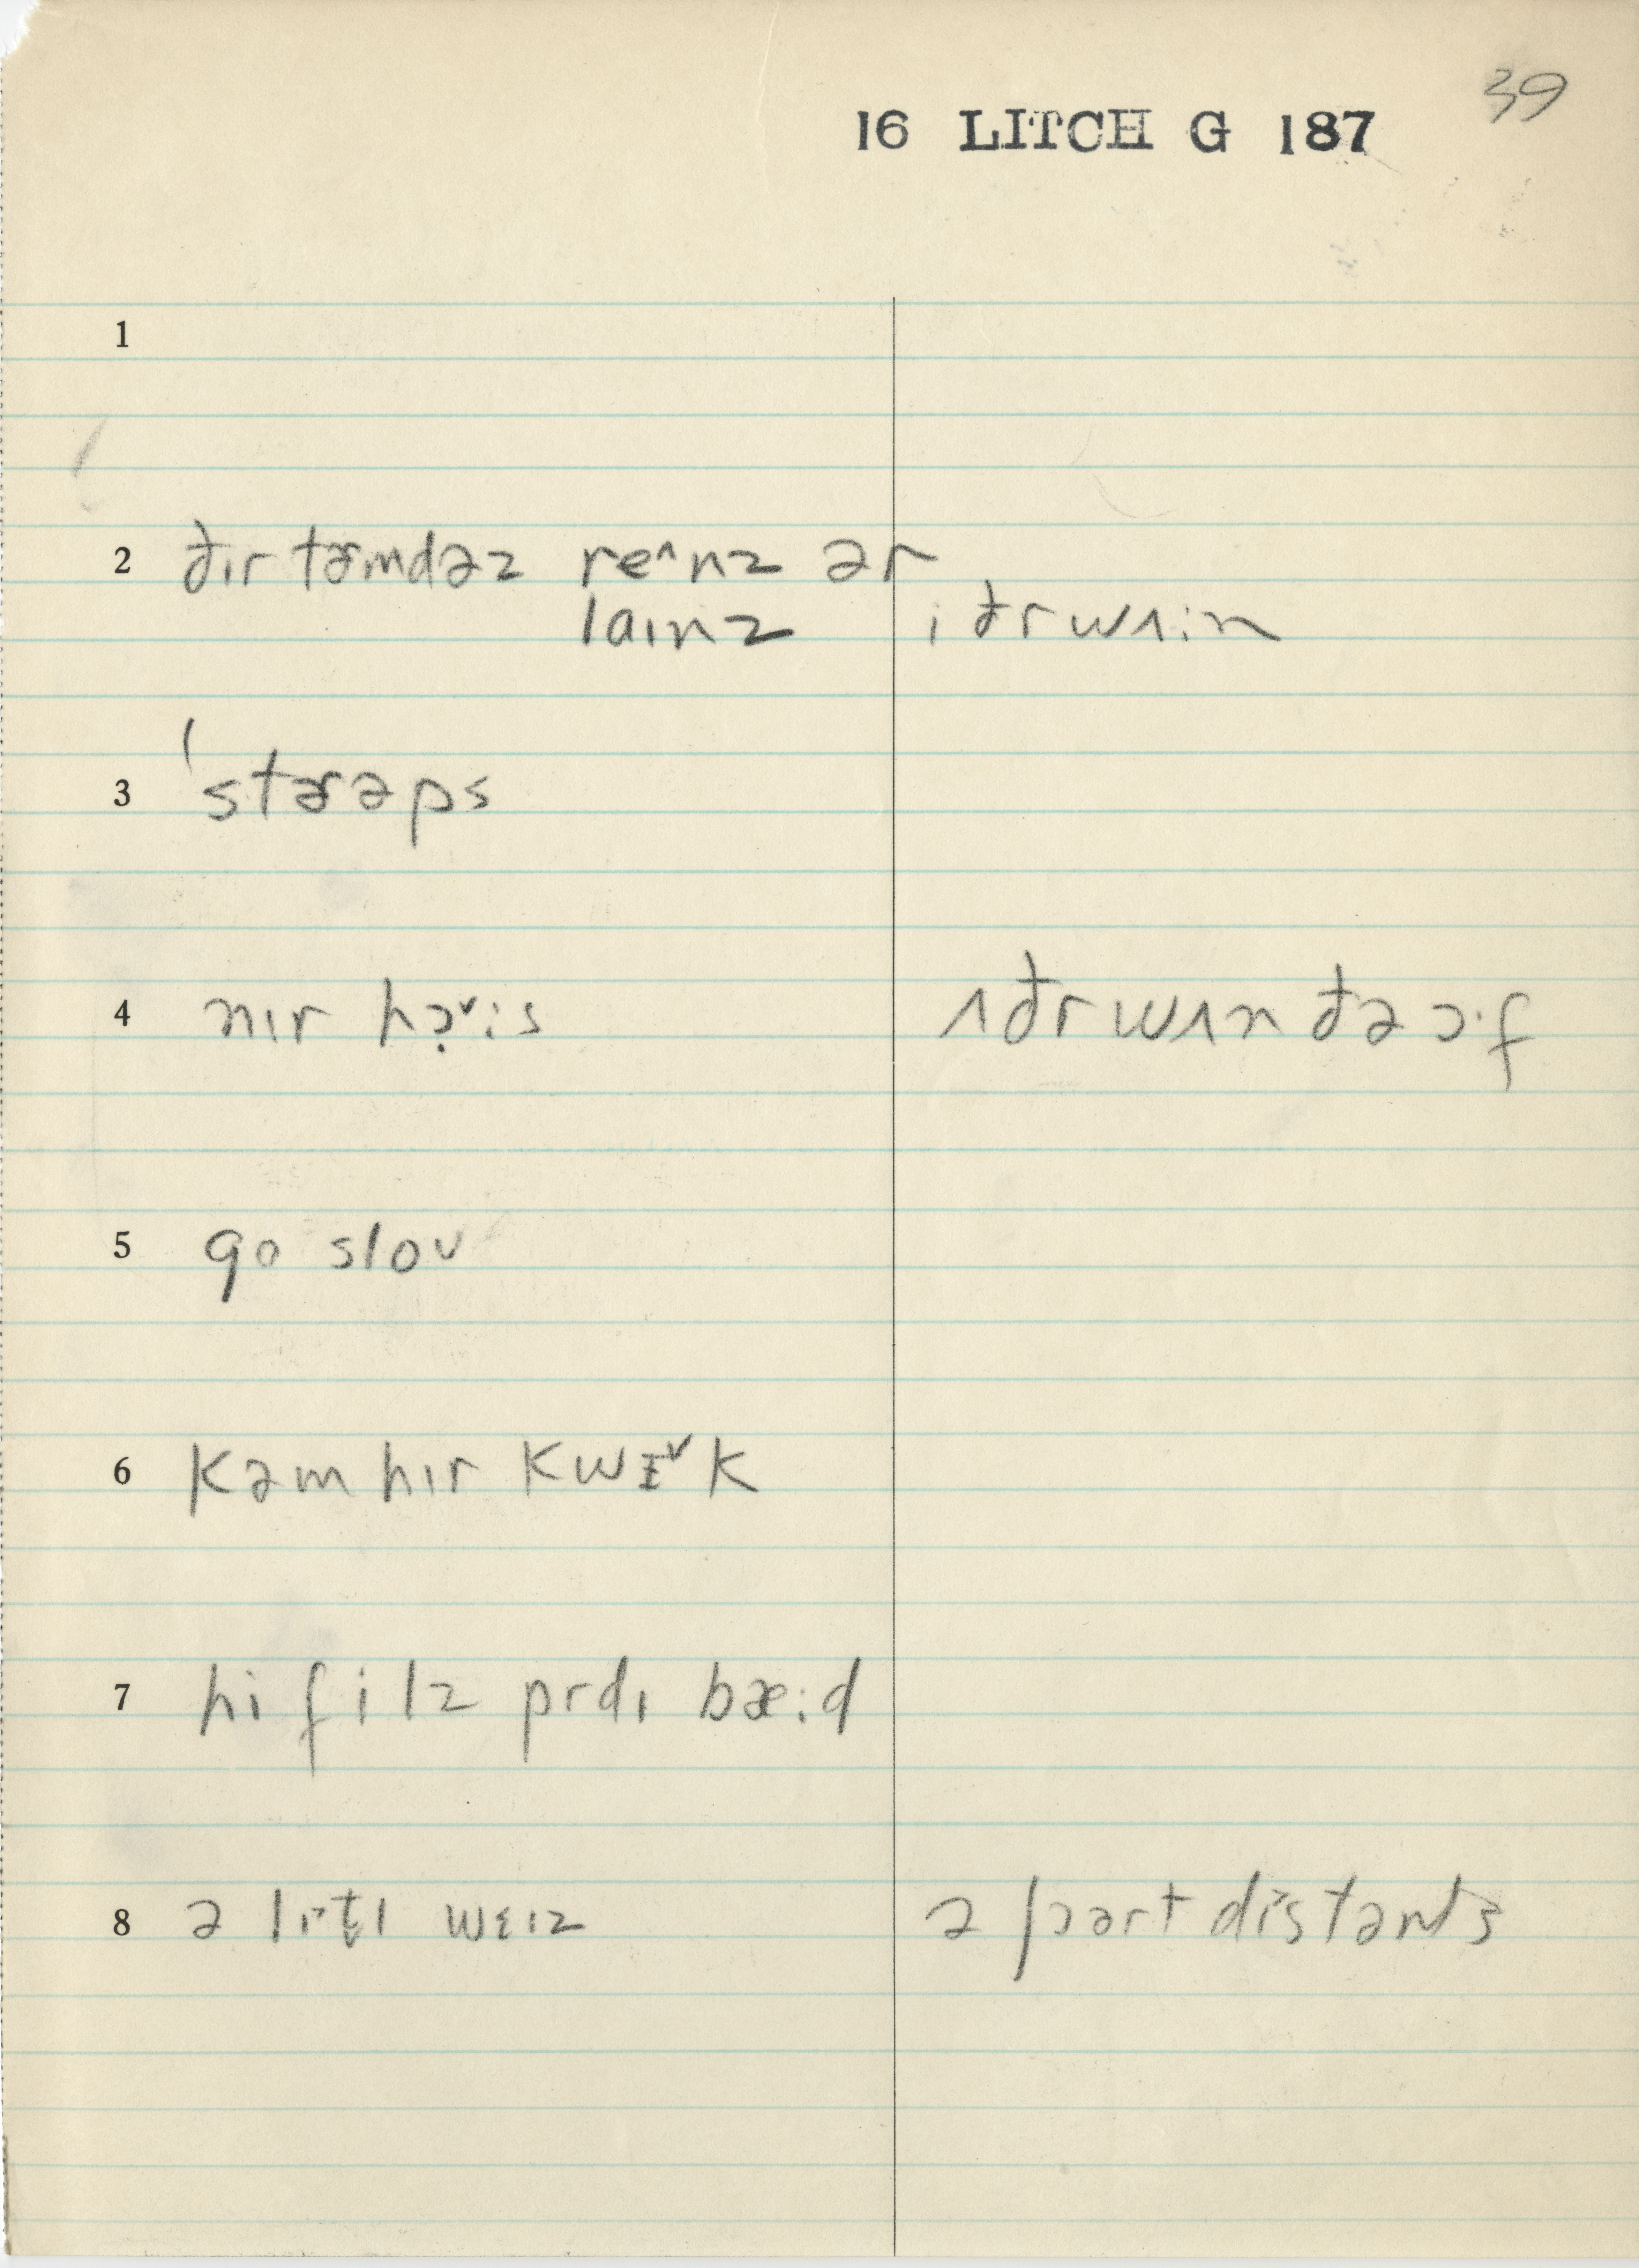 39
16 LITCH G 187
1
2 ðɪr təmdəz re˄nz ər
laɪnz iðrwʌin
3 'stərəps
4 nɪr hɔ̣˅ːs ʌðrwʌn ðə ɔːf
5 go sloʊ
6 kəm hɪr kwɪ˅k
7 hi filz prdɪ bæːd
8 ə lɪt̬l wɛɪz ə ʃɔərt dɪstənts